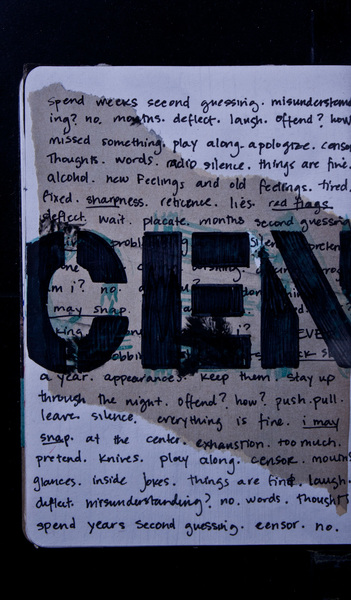 spend weeks second guessing. misunderstand
ing? no. months. deflect. laugh. offend? how
missed something. play along. apologize. censo
Thoughts. words. radio silence. things are fine.
alcohol. new feelings and old feelings. tired.
fixed. sharpness. reticence. lies. red flags.
deflect. wait. placate. months second guessing
CEN
am i? no.
i may snap.
a year. appearances. keep them. stay up
through the night. offend? how? push. pull.
leave. silence. everything is fine. i may
snap. at the center. exhaustion. too much.
pretend. knives. play along. censor. mount
glances. inside jokes. things are fine. laugh.
deflect. misunderstanding? no. words. thought
spend years second guessing. censor. no.